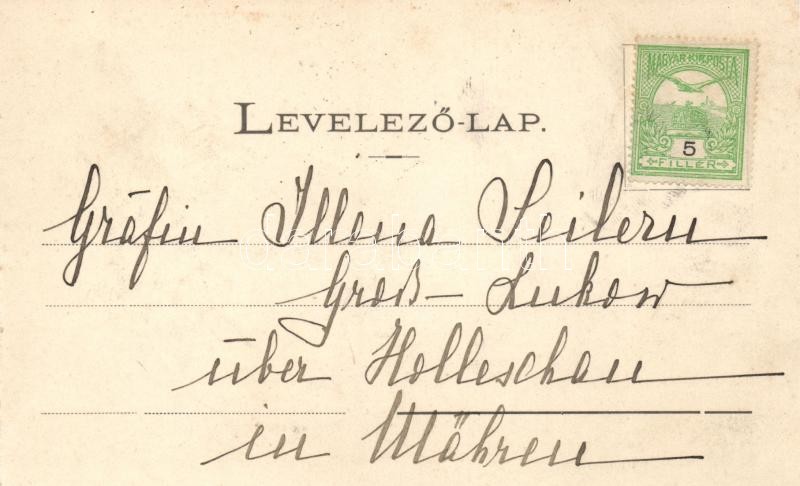 MAGYAR KIR. POSTA
5
FILLÉR
LEVELEZŐ-LAP.
Gräfin Illona Seilern
Groß-Lukow
über Holleschau
in Mähren